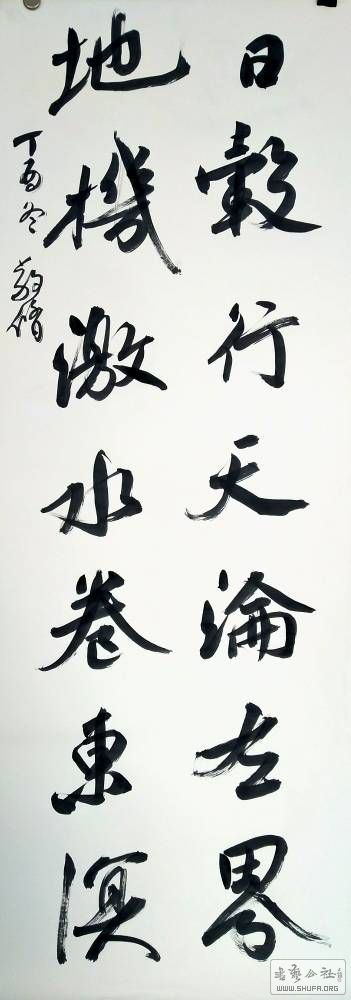 日轂行天淪左界
地機激水卷東溟
丁酉冬
書藝公社
WWW.SHUFA.ORG